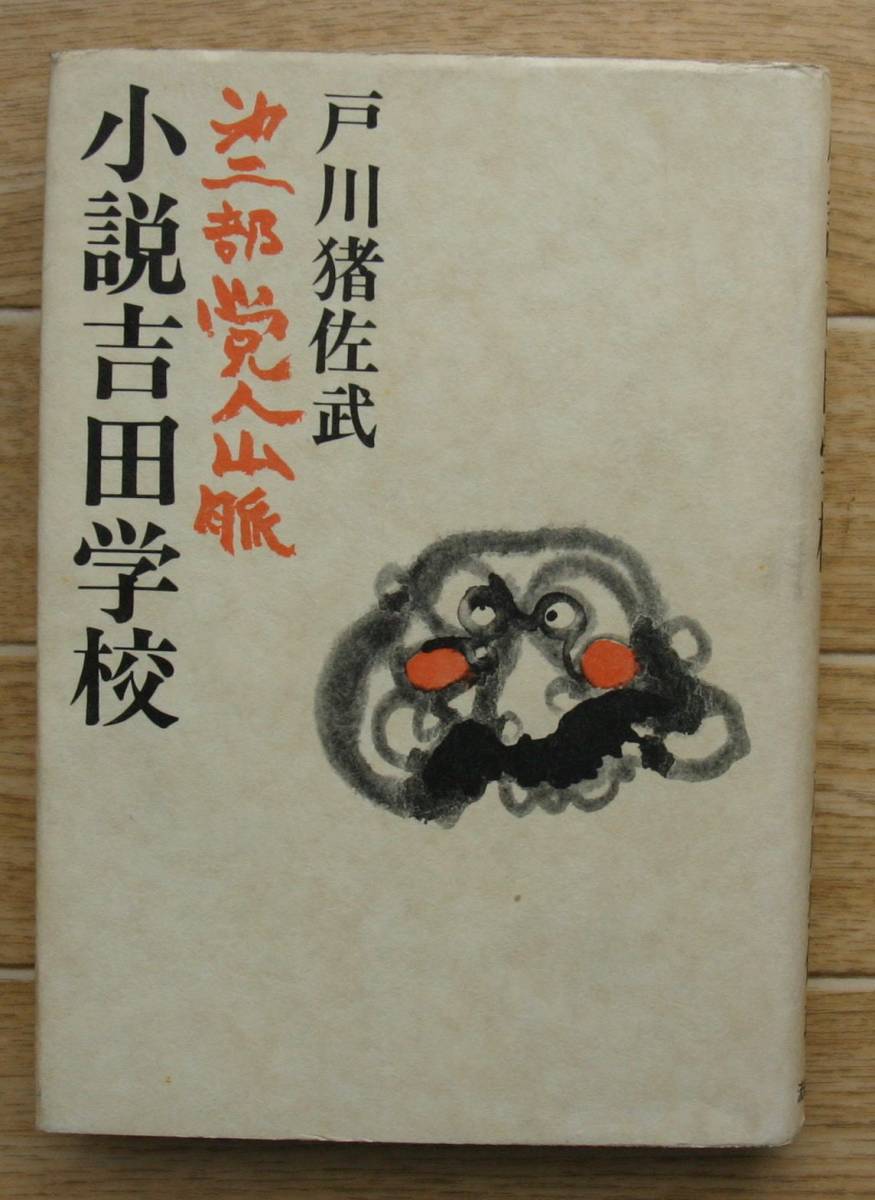 戸川猪佐武
第二部党人山脈
小説吉田学校